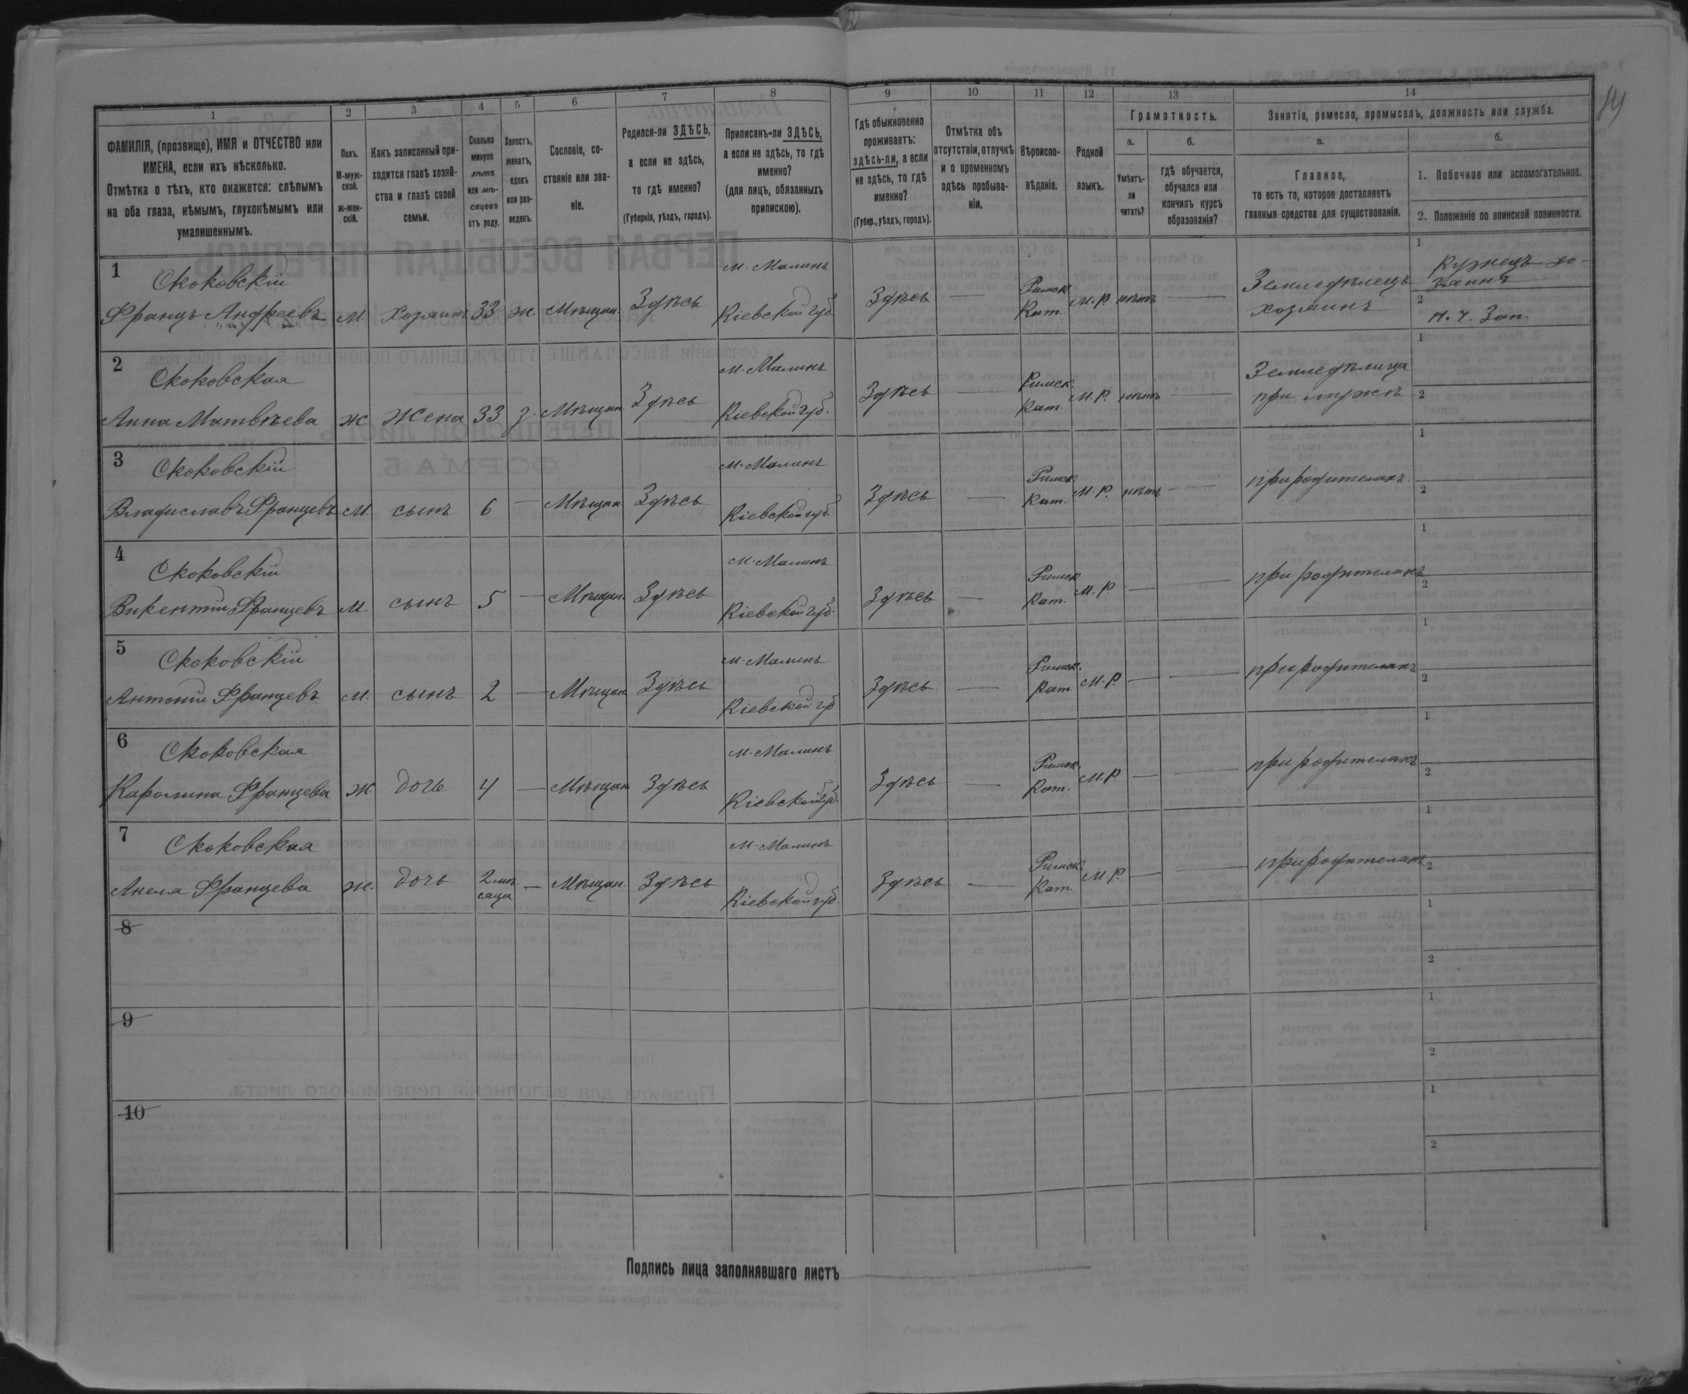 1
2
3
4
5
6
7
8
9
10
11
12
13
14
ФАМИЛІЯ, (прозвище), ИМЯ и ОТЧЕСТВО или
ИМЕНА, если ихъ нѣсколько.
Отмѣтка о тѣхъ, кто окажется: слѣпымъ
на оба глаза, нѣмымъ, глухонѣмымъ или
умалишеннымъ.
Полъ.
М-муж-
ской.
ж-жен-
скій.
Какъ записанный при-
ходится главѣ хозяй-
ства и главѣ своей
семьи.
Сколько
минуло
лѣтъ
или мѣ-
сяцевъ
отъ роду.
Холостъ,
женатъ,
вдовъ
или раз-
веденъ.
Сословіе, со-
стояніе или зва-
ніе.
Родился-ли ЗДѢСЬ,
а если не здѣсь,
то гдѣ именно?
(Губернія, уѣздъ, городъ).
Приписанъ-ли ЗДѢСЬ,
а если не здѣсь, то гдѣ
именно?
(для лицъ, обязанныхъ
припискою).
Гдѣ обыкновенно
проживаетъ:
здѣсь-ли, а если
не здѣсь, то гдѣ
именно?
(Губер., уѣздъ, городъ).
Отмѣтка объ
отсутствіи, отлучкѣ
и о временномъ
здѣсь пребыва-
ніи.
Вѣроиспо-
вѣданіе.
Родной
языкъ.
Грамотность.
а.
Умѣетъ-
ли
читать?
б.
гдѣ обучается,
обучался или
кончилъ курсъ
образованія?
Занятіе, ремесло, промыселъ, должность или служба.
а.
Главное,
то есть то, которое доставляетъ
главныя средства для существованія.
б.
1. Побочное или вспомогательное.
2. Положеніе по воинской повинности.
1
Скоковскій
Францъ Андреевъ М Хозяинъ 33 ж. Мѣщан. Здѣсь м. Малинъ Кіевской губ. Здѣсь — Римск. Кат. М.Р. нѣтъ — Земледѣлецъ хозяинъ
1 Кузнецъ хо-
зяинъ
2
2
Скоковская
Анна Матвѣева ж Жена 33 з. Мѣщан. Здѣсь м. Малинъ Кіевской губ. Здѣсь Римск. Кат. М.Р. нѣтъ — Земледѣлица при мужѣ
1
2
3
Скоковскій
Владиславъ Францевъ М. сынъ 6 — Мѣщан. Здѣсь м. Малинъ Кіевской губ. Здѣсь — Римск. Кат. М.Р. нѣтъ — при родителяхъ
1
2
4
Скоковскій
Викентій Францевъ М. сынъ 5 — Мѣщан. Здѣсь м. Малинъ Кіевской губ. Здѣсь — Римск. Кат. М.Р. — — при родителяхъ
1
2
5
Скоковскій
Антоній Францевъ М. сынъ 2 — Мѣщан. Здѣсь м. Малинъ Кіевской губ. Здѣсь — Римск. Кат. М.Р. — — при родителяхъ
1
2
6
Скоковская
Каролина Францева ж дочь 4 — Мѣщан. Здѣсь м. Малинъ Кіевской губ. Здѣсь — Римск. Кат. М.Р — — при родителяхъ
1
2
7
Скоковская
Анеля Францева ж. дочь 2 мѣсяца — Мѣщан. Здѣсь м. Малинъ Кіевской губ. Здѣсь — Римск. Кат. М.Р — — при родителяхъ
1
2
8
1
2
9
1
2
10
1
2
Подпись лица заполнявшаго листъ